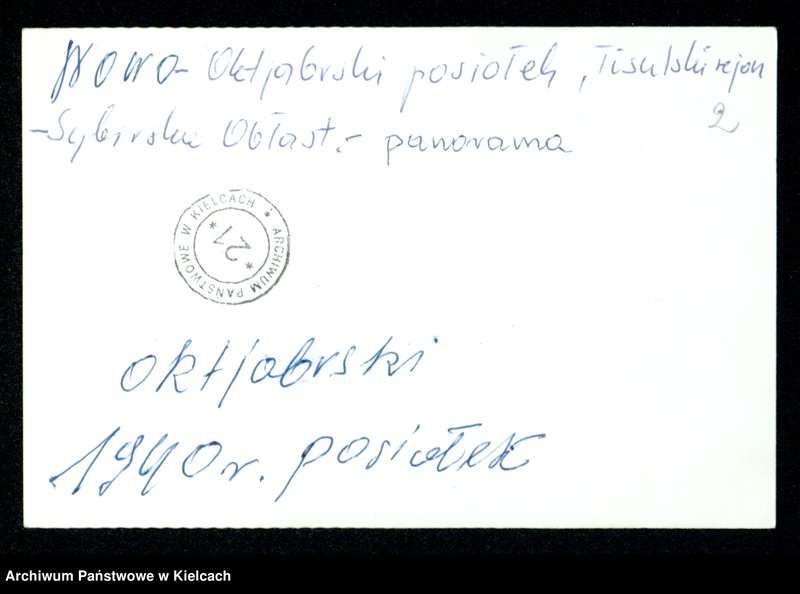 Nowo-Oktjabrski posiołek, Tisulski rejon
2
-Sybirska Obłast.- panorama
ARCHIWUM PAŃSTWOWE W KIELCACH * 
* 21 *
oktjabrski
1940r. posiołek
Archiwum Państwowe w Kielcach